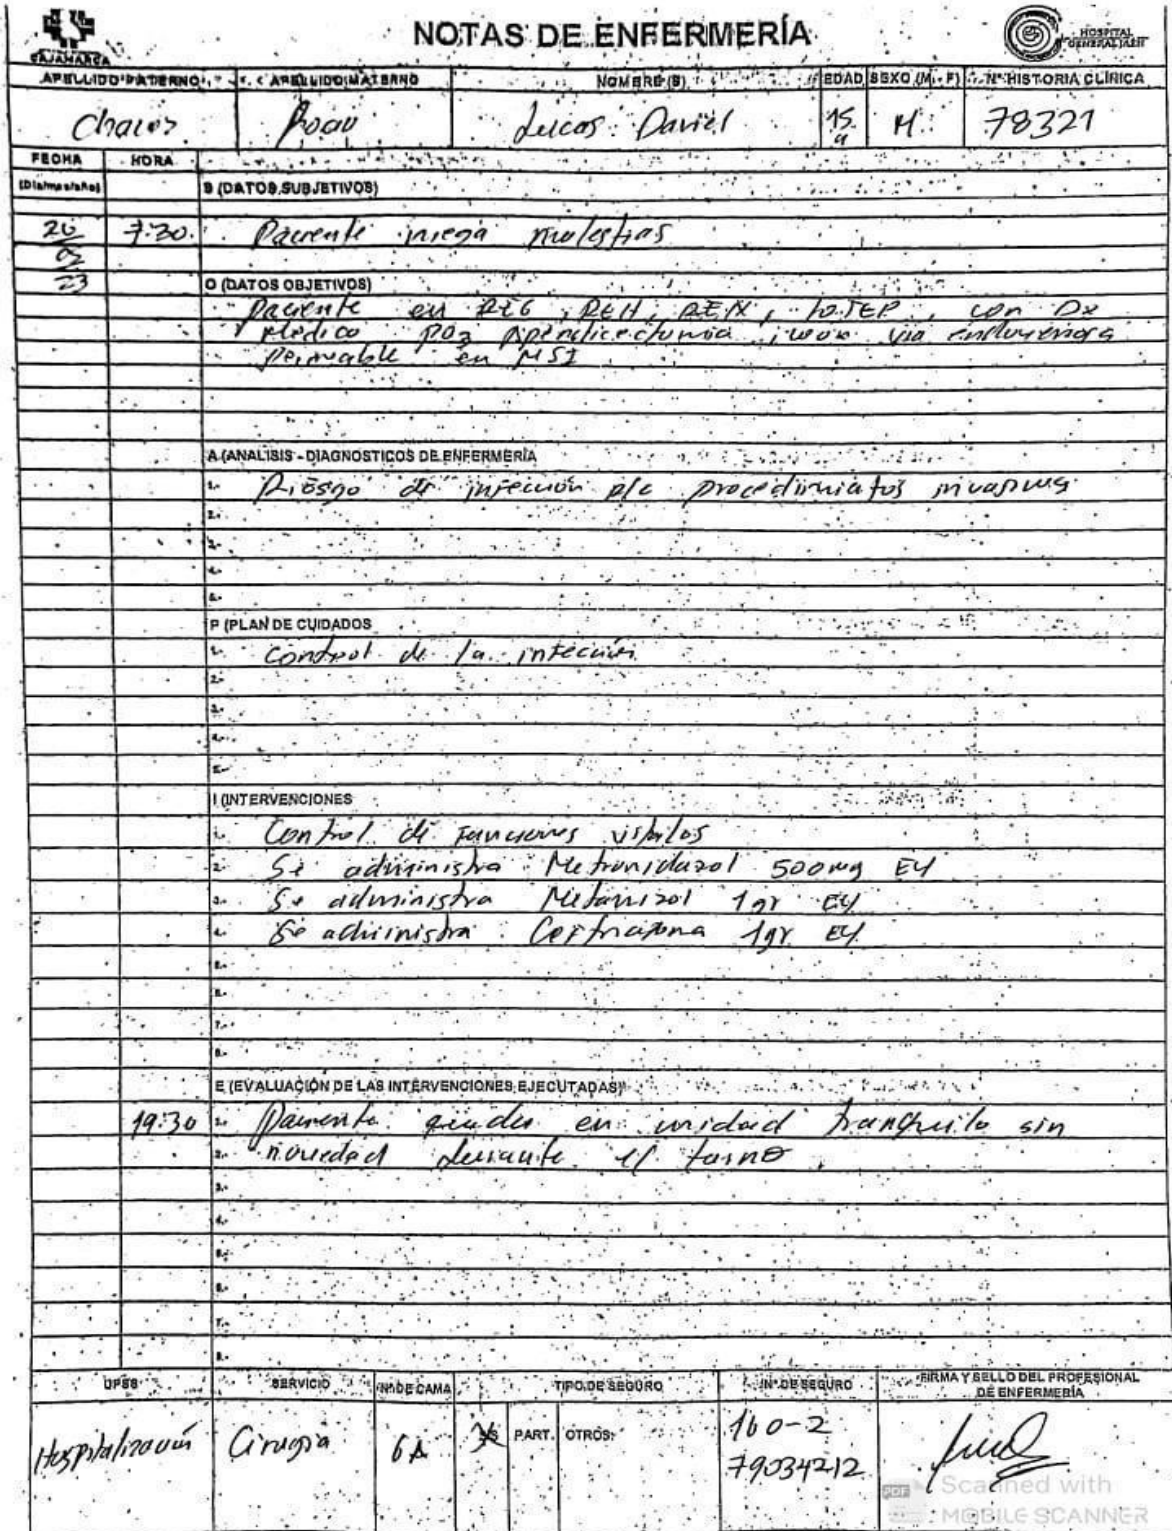 NOTAS DE ENFERMERÍA
CAJAMARCA
HOSPITAL GENERAL JAEN
APELLIDO PATERNO APELLIDO MATERNO NOMBRE (S) EDAD SEXO (M - F) N° HISTORIA CLÍNICA
Lucas Daniel 15 a M 78321
FECHA HORA
(Dia/mes/año) S (DATOS SUBJETIVOS)
7:30 Paciente niega molestias
23
O (DATOS OBJETIVOS)
Paciente en REG, REH, REN, LOTEP, con Dx
Médico PO2 Apendicectomia, via endovenosa
permeable en MSI
A (ANALISIS - DIAGNOSTICOS DE ENFERMERÍA
1.- Riesgo de infección p/c procedimiatos invasivos
2.-
3.-
4.-
5.-
P (PLAN DE CUIDADOS
1.- Control de la infección
2.-
3.-
4.-
5.-
I (INTERVENCIONES
1.- Control de funciones vitales
2.- Se administra Metronidazol 500mg EV
3.- Se administra Metamizol 1gr EV
4.- Se administra Ceftriaxona 1gr EV
5.-
6.-
7.-
8.-
E (EVALUACIÓN DE LAS INTERVENCIONES EJECUTADAS)
19:30 1.- Paciente queda en unidad tranquilo sin
2.- novedad durante el turno
3.-
4.-
5.-
6.-
7.-
8.-
UPSS SERVICIO N° DE CAMA TIPO DE SEGURO N° DE SEGURO FIRMA Y SELLO DEL PROFESIONAL DE ENFERMERÍA
Hospitalización Cirugía 6A PART. OTROS: 160-2
79034212
PDF Scanned with
MOBILE SCANNER